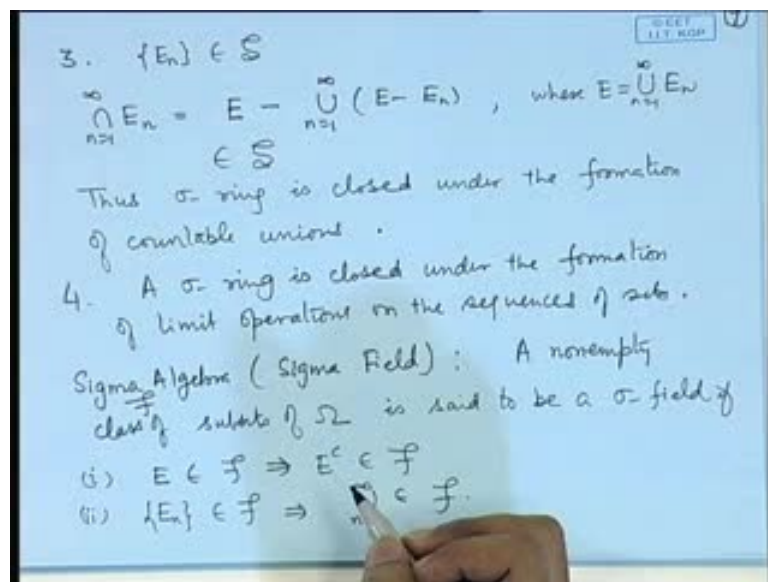 © CET
I.I.T. KGP
9
3. {En} ∈ S
∞ ∩ n=1 En = E - ∞ ∪ n=1 (E - En), where E = ∞ ∪ n=1 En
∈ S
Thus σ- ring is closed under the formation
of countable unions.
4. A σ- ring is closed under the formation
of limit operations on the sequences of sets.
Sigma Algebra (Sigma Field): A nonempty
class F of subsets of Ω is said to be a σ- field if
(i) E ∈ F ⇒ E^c ∈ F
(ii) {En} ∈ F ⇒ ∈ F.